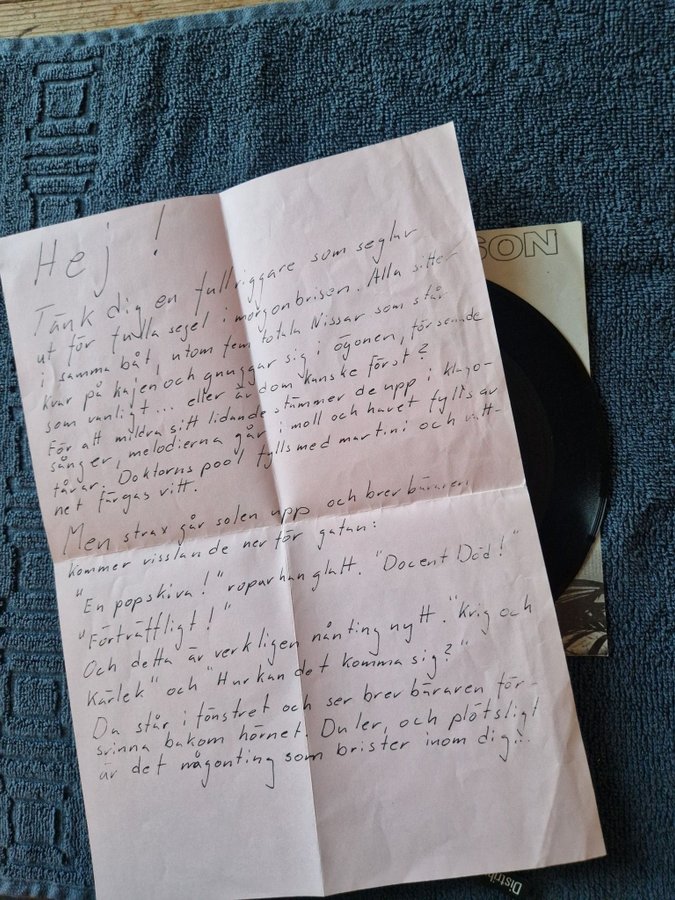 Hej!
Tänk dig en fullriggare som seglar
ut för fulla segel i morgonbrisen. Alla sitter
i samma båt, utom fem totala Nissar som står
kvar på kajen och gnuggar sig i ögonen, försenade
som vanligt... eller är dom kanske först?
För att mildra sitt lidande stämmer de upp i klago-
sånger, melodierna går i moll och havet fylls av
tårar. Doktorns pool fylls med martini och vatt-
net färgas vitt.
Men strax går solen upp och brevbäraren
kommer visslande ner för gatan:
"En popskiva!" ropar han glatt. "Docent Död!"
"Förträffligt!"
Och detta är verkligen nånting nytt. "Krig och
Kärlek" och "Hur kan det komma sig?"
Du står i fönstret och ser brevbäraren för-
svinna bakom hörnet. Du ler, och plötsligt
är det någonting som brister inom dig...
SON
Distrib